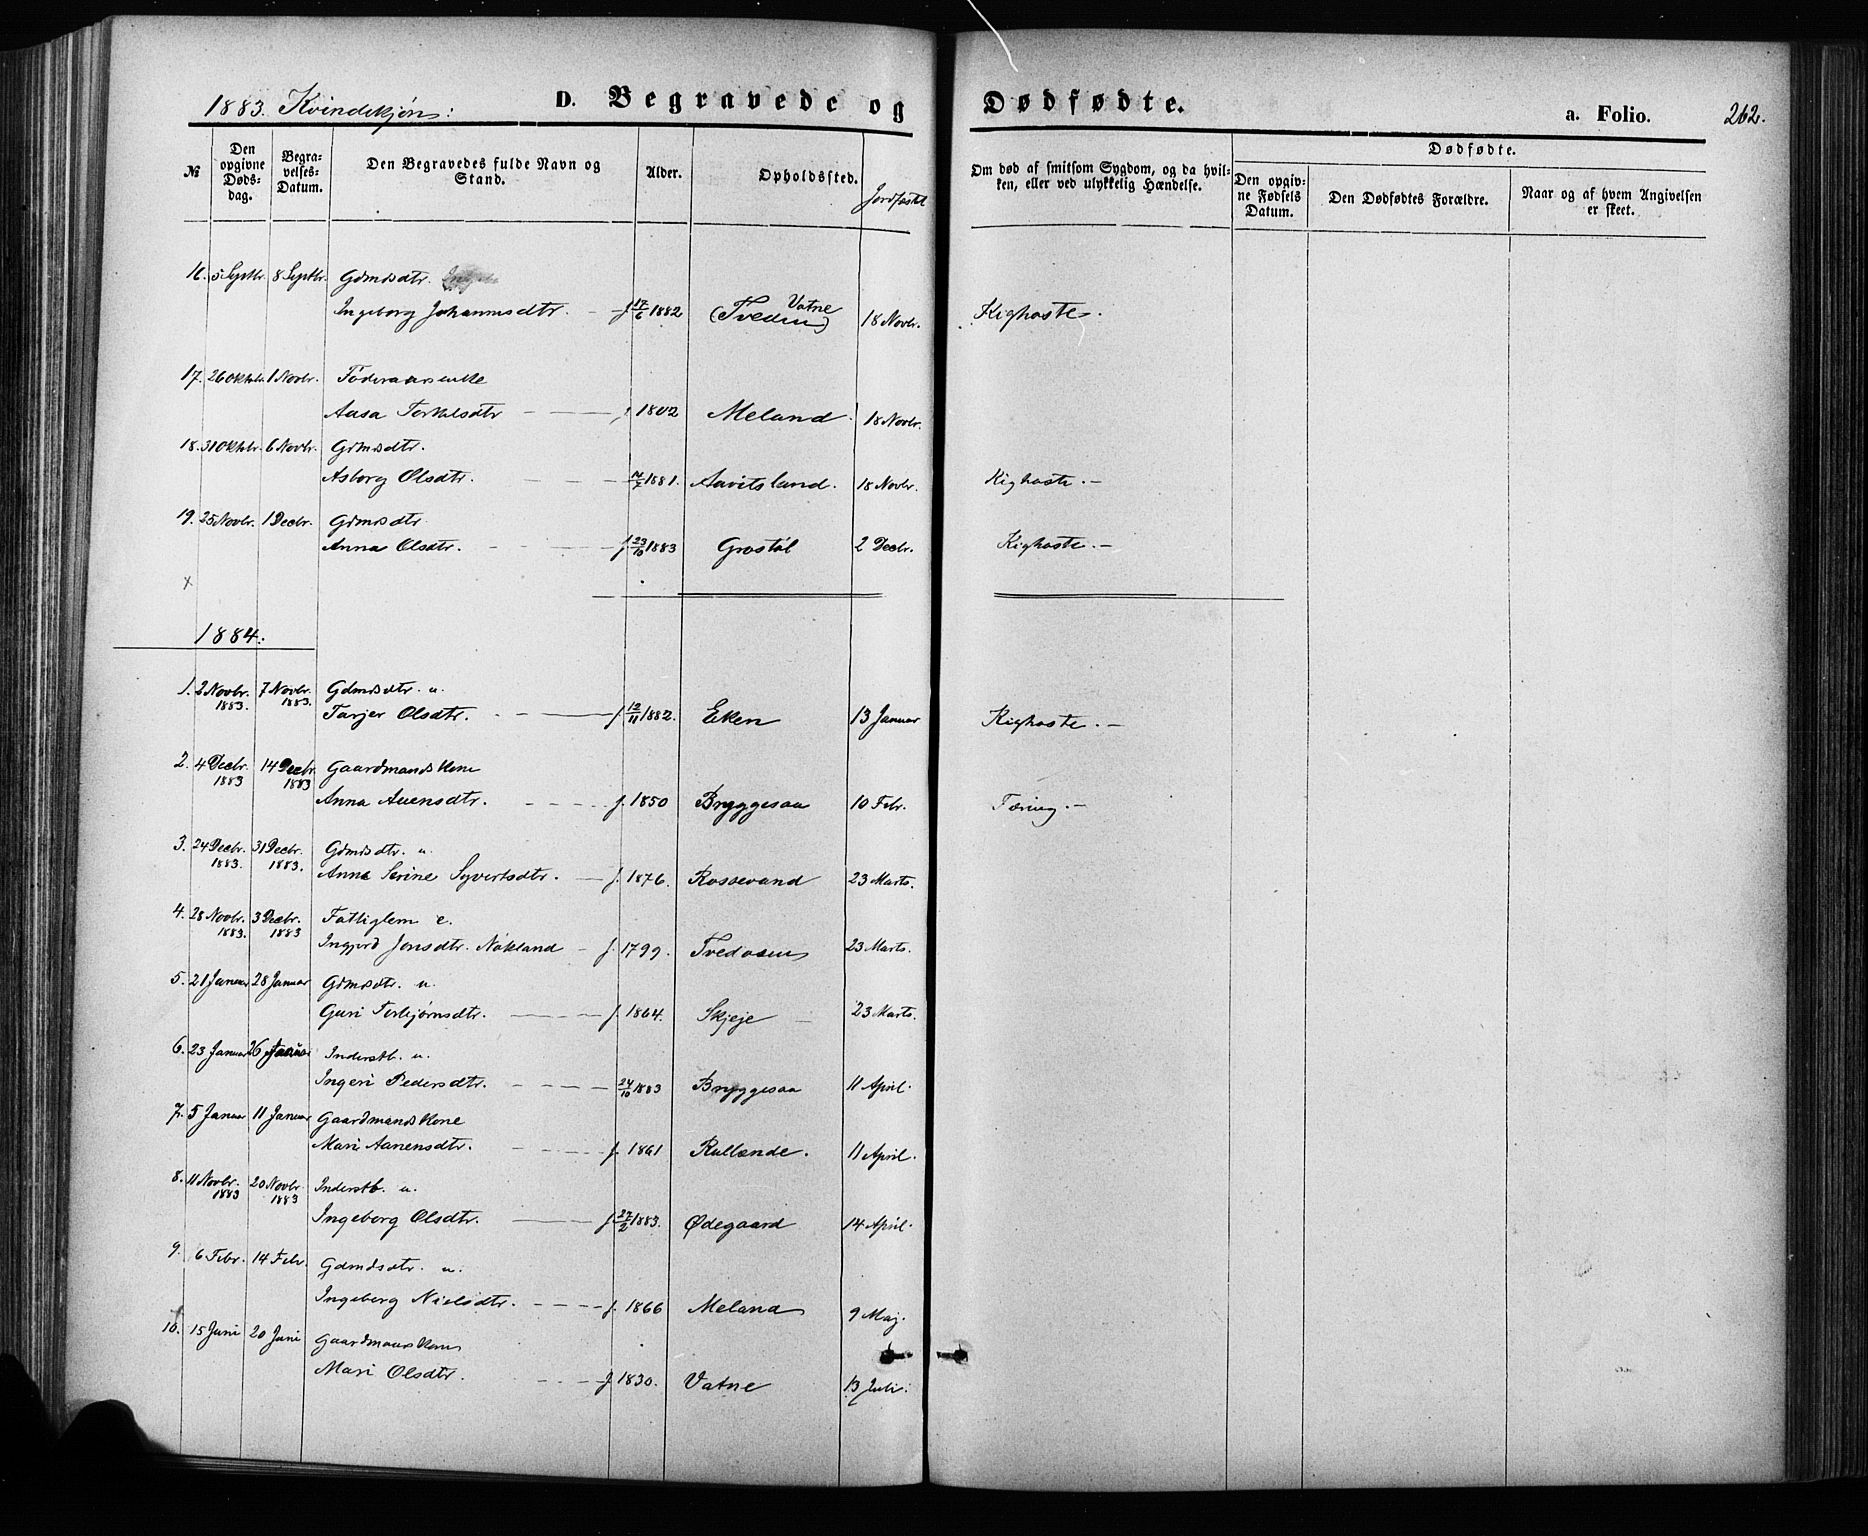 1883. Kvindekjøn: D. Begravede og Dødfødte. a. Folio. 262.
№ Den opgivne Døds-dag. Begra-velses-Datum. Den Begravedes fulde Navn og Stand. Alder. Opholdssted. Jordfæstet Om død af smitsom Sygdom, og da hvil-ken, eller ved ulykkelig Hændelse. Dødfødte.
Den opgiv-ne Fødsels Datum. Den Dødfødtes Forældre. Naar og af hvem Angivelsen er skeet.
16. 5 Septbr. 8 Septbr. Gdmdsdtr.
Ingeborg Johannesdtr. f. 17/6 1882 Vatne (Tveden) 18 Novbr. Kighoste.
17. 26 Oktbr. 1 Novbr. Föderaadsenke
Aasa Torkelsdtr f. 1802 Meland. 18 Novbr.
18. 31 Oktbr. 6 Novbr. Gdmdsdtr.
Asborg Olsdtr. 17/7 1881. Aavitsland. 18 Novbr. Kighoste.
19. 25 Novbr. 1 Decbr. Gdmdsdtr.
Anna Olsdtr. f. 23/10 1883 Grostøl 2 Decbr. Kighoste.
x
1884.
1. 2 Novbr. 1883. 7 Novbr. 1883. Gdmdsdtr. u.
Tarjer Olsdtr. f. 12/11 1882. Eken 13 Januar Kighoste.
2. 4 Decbr. 1883 14 Decbr. 1883 Gaardmandskone
Anna Auensdtr. f. 1850 Bryggesaa 10 Febr. Tæring.
3. 24 Decbr. 1883. 31 Decbr. 1883. Gdmdsdtr. u.
Anne Serine Syvertsdtr. f. 1876. Rossevand 23 Marts.
4. 28 Novbr. 1883. 3 Decbr. 1883 Fattiglem e.
Ingjerd Jonsdtr. Nökland f. 1799. Tvedosen 23 Marts.
5. 21 Januar 28 Januar Gdmdsdtr. u.
Guri Torbjørnsdtr. f. 1864. Skjeje 23 Marts.
6. 23 Januar 26 Januar Inderstb. u.
Ingeri Pedersdtr. 24/10 1883 Bryggesaa 11 April.
7. 5 Januar 11 Januar Gaardmandskone
Mari Aanensdtr. f. 1861 Rullende. 11 April.
8. 11 Novbr. 1883 20 Novbr. 1883 Inderstb. u.
Ingeborg Olsdtr. f. 27/2 1883. Ødegaard 14 April.
9. 6 Febr. 14 Febr. Gdmdsdtr. u.
Ingeborg Nielsdtr. f. 1866 Meland 9 Maj.
10. 15 Juni 20 Juni Gaardmanskone
Mari Olsdtr. f. 1830. Vatne 13 Juli.